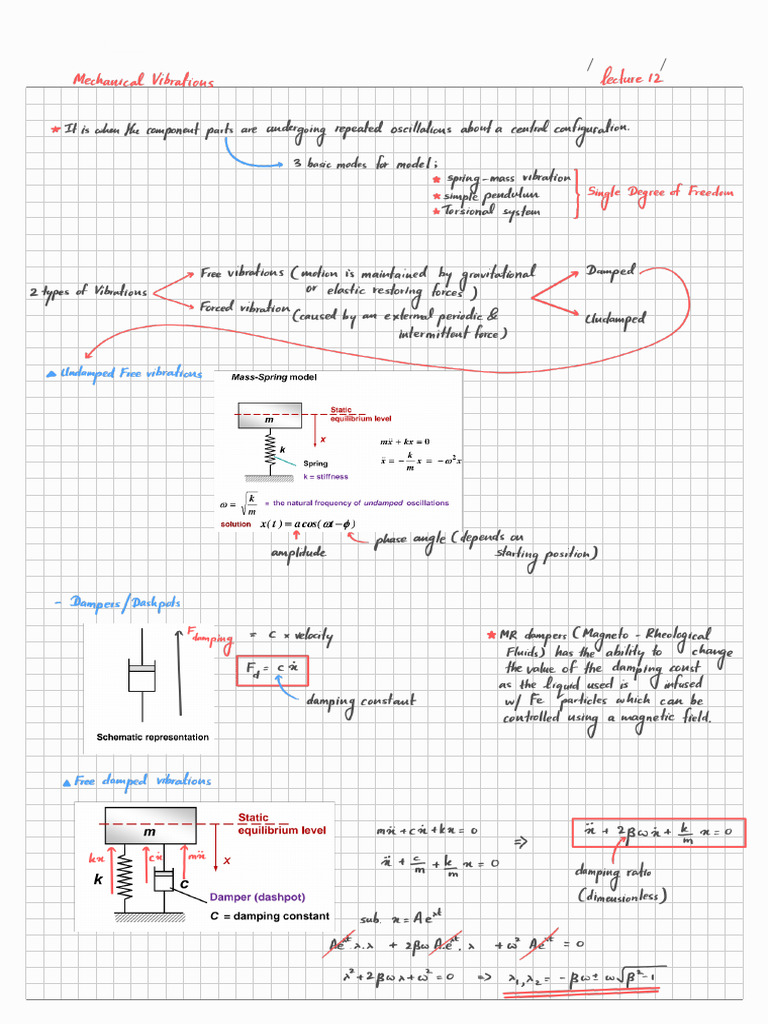 Mechanical Vibrations
/ /
lecture 12
* It is when the component parts are undergoing repeated oscillations about a central configuration.
3 basic modes for model;
* spring-mass vibration
* simple pendulum
* Torsional system
Single Degree of Freedom
2 types of Vibrations
Free vibrations (motion is maintained by gravitational
or elastic restoring forces)
Forced vibration (caused by an external periodic &
intermittent force)
Damped
Undamped
▲ Undamped Free vibrations
Mass-Spring model
m
Static
equilibrium level
x
k
Spring
k = stiffness
mẍ + kx = 0
ẍ = - k/m x = -ω²x
ω = √(k/m) = the natural frequency of undamped oscillations
solution x(t) = a cos(ωt - ϕ)
amplitude
phase angle (depends on
starting position)
- Dampers/Dashpots
F damping = c × velocity
F_d = cẋ
damping constant
Schematic representation
* MR dampers (Magneto - Rheological
Fluids) has the ability to change
the value of the damping const
as the liquid used is infused
w/ Fe particles which can be
controlled using a magnetic field.
▲ Free damped vibrations
m
Static
equilibrium level
kx
cẋ
mẍ
x
k
c
Damper (dashpot)
C = damping constant
mẍ + cẋ + kx = 0
ẍ + c/m + k/m x = 0
=>
ẍ + 2βωẋ + k/m x = 0
damping ratio
(dimensionless)
sub. x = Ae^λt
Ae^λt . λ.λ + 2βω Ae^λt . λ + ω² Ae^λt = 0
λ² + 2βωλ + ω² = 0 => λ₁, λ₂ = -βω ± ω√(β²-1)